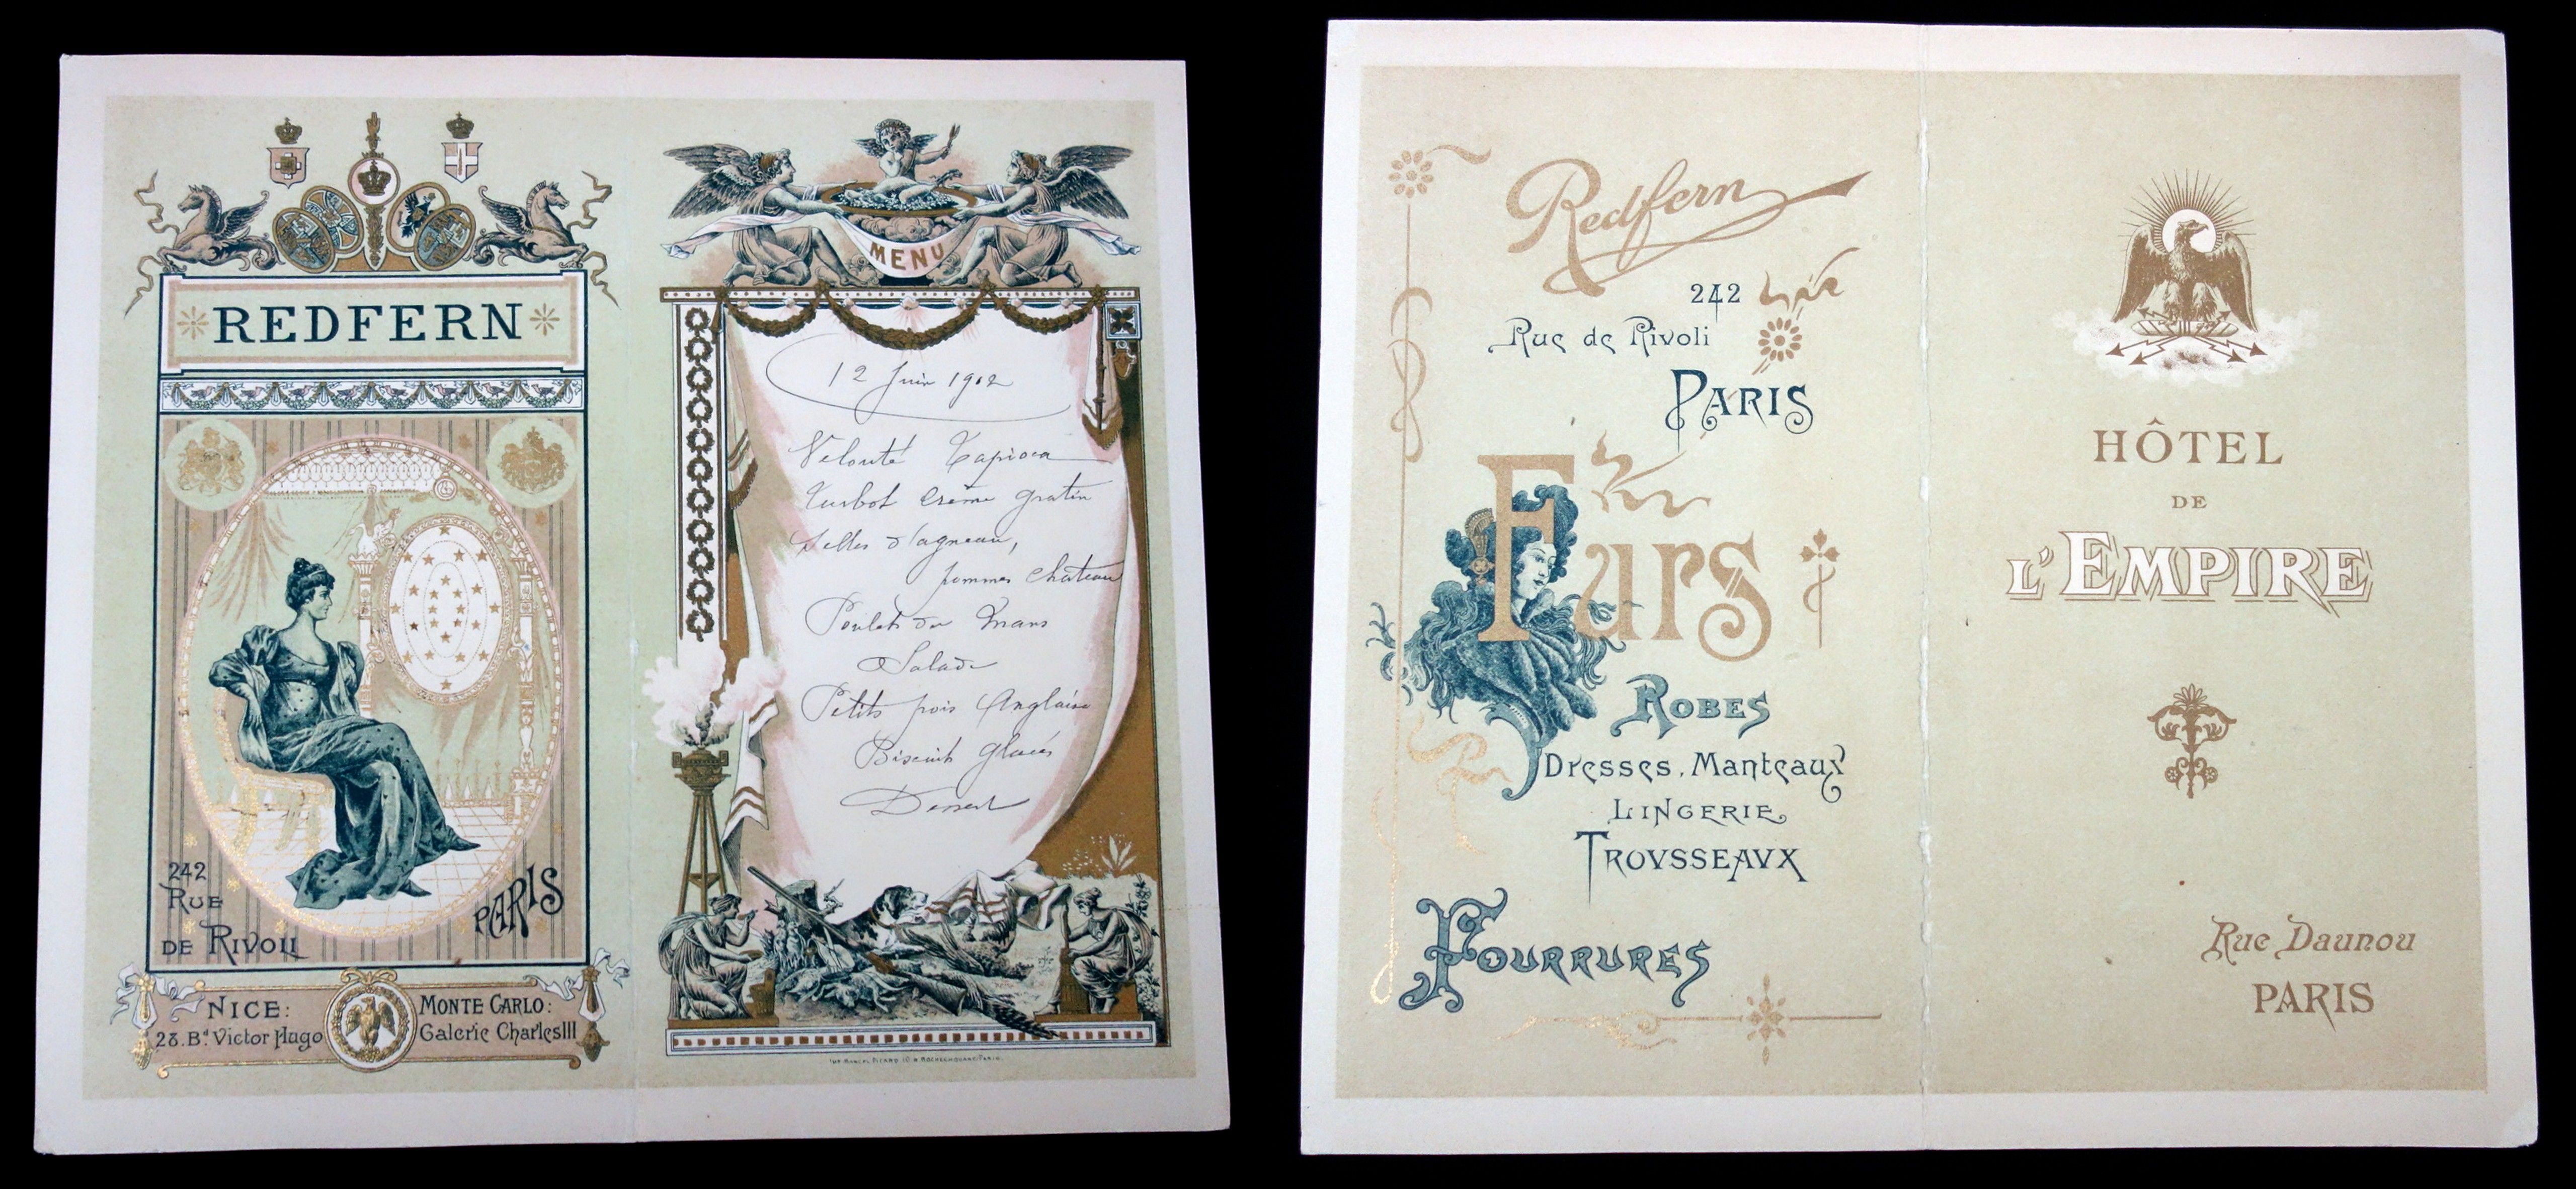 REDFERN
242
RUE
DE RIVOLI
PARIS
NICE:
28. Bd. Victor Hugo
MONTE CARLO:
Galerie Charles III
MENU
12 Juin 1902
Velouté Tapioca
Turbot crême gratin
Selles d'agneau,
pommes chateau
Poulets du Mans
Salade
Petits pois Anglaise
Biscuit glacés
Dessert
PARIS
Redfern
242
Rue de Rivoli
PARIS
Furs
ROBES
Dresses, Manteaux
LINGERIE
TROVSSEAVX
FOURRURES
HÔTEL
DE
L'EMPIRE
Rue Daunou
PARIS